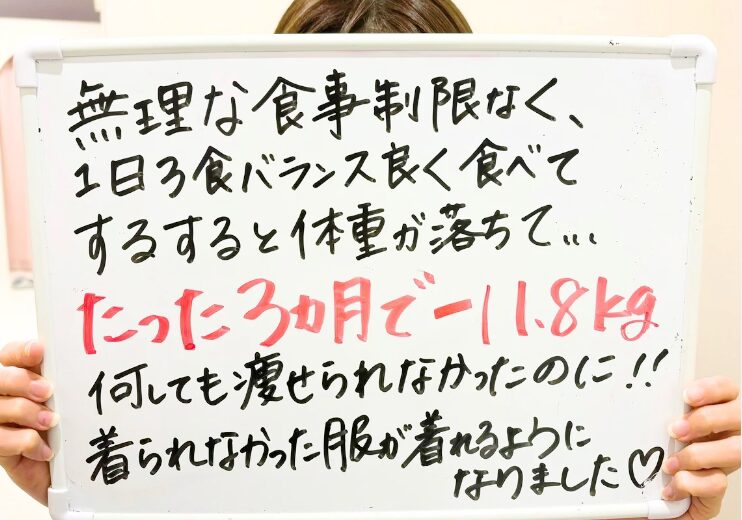 無理な食事制限なく、
1日3食バランス良く食べて
するすると体重が落ちて...
たった3ヵ月で-11.8kg
何しても痩せられなかったのに!!
着られなかった服が着れるように
なりました♡